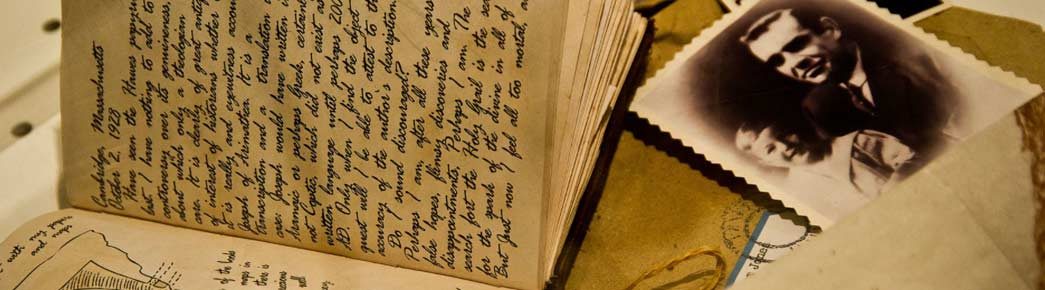 Cambridge, Massachusetts
October 2, 1923
Have seen the Hawes papyrus
but I have nothing to add to
controversy over its genuineness,
about which only a theologian
care. It is clearly of great antiqu
of interest to historians whether
it is really and eyewitness accou
Joseph of Arimathea. It is a
transcription and a translation
are: Joseph would have written i
Aramaic or perhaps Greek, certain
not Coptic, which did not exist as
written language until perhaps 200
AD. Only when I find the object
quest will I be able to attest to th
accuracy of the author's description
Do I sound discouraged?
Perhaps I am, after all these years
false hopes, flimsy discoveries and
disappointments, Perhaps I am. The
search fort the Holy Grail is the sea
for the spark of the divine in all of
But just now I feel all too mortal, a
with my papers
and maps
of the head
maps in
there is
sell
Jones